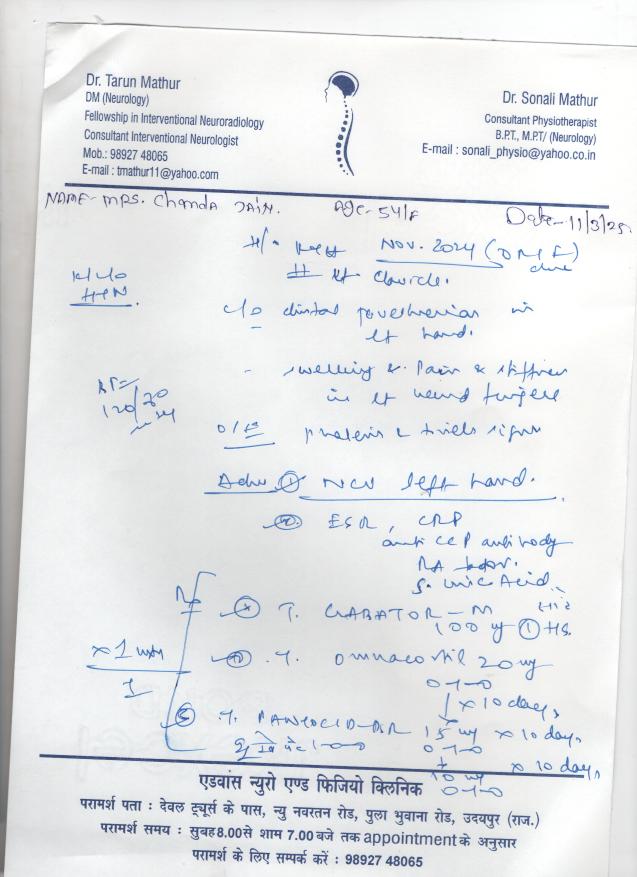 Dr. Tarun Mathur
DM (Neurology)
Fellowship in Interventional Neuroradiology
Consultant Interventional Neurologist
Mob.: 98927 48065
E-mail : tmathur11@yahoo.com
Dr. Sonali Mathur
Consultant Physiotherapist
B.P.T., M.P.T/ (Neurology)
E-mail : sonali_physio@yahoo.co.in
NAME- MRS. Chanda JAIN. Age- 54/F Date- 11/3/25
H/o Nov. 2024
# Lt. Clavicle.
K/c/o
HTN.
c/o distal in
Lt hand.
- swelling & Pain & stiffness
in Lt hand fingers
BP=
120/70
O/E phalen's & tinels signs
Adv ① NCV left hand.
② ESR, CRP
anti CCP antibody
RA factor.
S. Uric Acid
Rx
① T. GABATOR-M
100 mg ① HS.
② T. omnacortil 20 mg
0-1-0
x 10 days
③ T. PANTOCID-DSR 15 mg x 10 days
0-1-0
10 mg x 10 days
0-1-0
एडवांस न्युरो एण्ड फिजियो क्लिनिक
परामर्श पता : देवल ट्यूर्स के पास, न्यु नवरतन रोड, पुला भुवाना रोड, उदयपुर (राज.)
परामर्श समय : सुबह 8.00 से शाम 7.00 बजे तक appointment के अनुसार
परामर्श के लिए सम्पर्क करें : 98927 48065